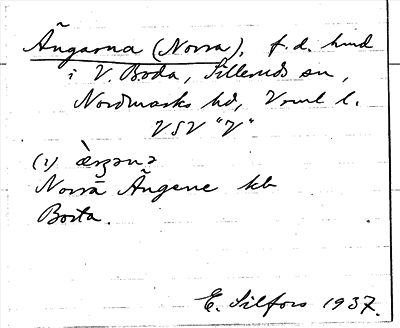 Ängarna (Norra), f.d. hmd
i V. Boda, Silleruds sn,
Nordmarks hd, Vrml l.
VSV "V"
(1) æ̀ŋənə
Norra Ängene kb
Borta.
E. Silfors 1937.